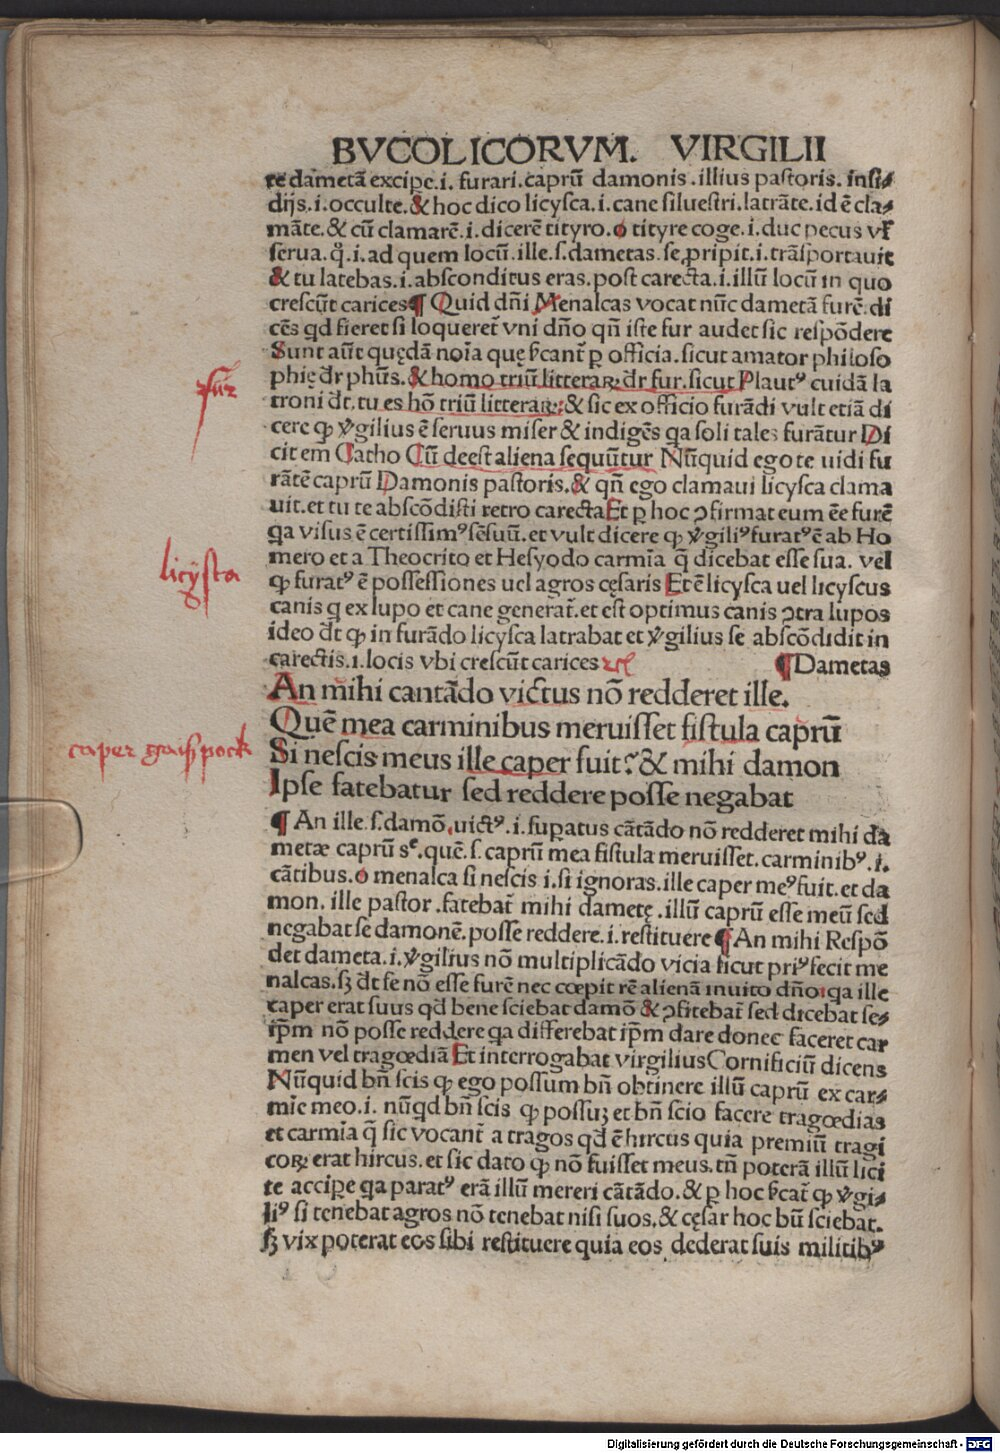 BVCOLICORVM. VIRGILII
te dametã excipe.i. furari.caprũ damonis .illius pastoris. insi⸗
dijs.i.occulte.& hoc dico licysca.i.cane siluestri.latrãte.id ẽ cla⸗
mãte.& cũ clamarẽ.i.dicerẽ tityro.o tityre coge.i.duc pecus vr̃
serua.q̊.i.ad quem locũ.ille.s.dametas.se ꝓripit.i.trãsportauit
& tu latebas.i.absconditus eras.post carecta.i.illũ locũ in quo
crescũt carices¶ Quid dñi Menalcas vocat nũc dametã furẽ.di
cẽs qd fieret si loqueret̃ vni dño qñ iste fur audet sic respõdere
Sunt aũt quędã noĩa quę sĩcant̃ ꝑ officia.sicut amator philoso
phię dr̃ phũs.& homo triũ litteraꝝ dr̃ fur.sicut Plautꝰ cuidã la
troni dt̃.tu es hõ triũ litteraꝝ:& sic ex officio furãdi vult etiã di
cere ꝙ v̓gilius ẽ seruus miser & indigẽs qa soli tales furãtur Di
cit em Catho Cũ deest aliena sequũtur Nũquid ego te uidi fu
rãtẽ caprũ Damonis pastoris.& qñ ego clamaui licysca clama
uit.et tu te abscõdisti retro carecta Et ꝑ hoc ↄfirmat eum ẽe furẽ
qa visus ẽ certissimꝰ sẽsuũ.et vult dicere ꝙ v̓giliꝰ furatꝰ ẽ ab Ho
mero et a Theocrito et Hesyodo carmĩa q̃ dicebat esse sua. vel
ꝙ furatꝰ ẽ possessiones uel agros cęsaris Et ẽ licysca uel licyscus
canis q ex lupo et cane generat̃.et est optimus canis ↄtra lupos
ideo dt̃ ꝙ in furãdo licysca latrabat et v̓gilius se abscõdidit in
carectis.i.locis vbi crescũt carices ¶Dametas
An mihi cantãdo victus nõ redderet ille.
Quẽ mea carminibus meruisset fistula caprũ
Si nescis meus ille caper fuit:& mihi damon
Ipse fatebatur sed reddere posse negabat
¶ An ille.s.damõ.uictꝰ.i.supatus cãtãdo nõ redderet mihi da
metæ caprũ sᵉ.quẽ.s.caprũ mea fistula meruisset.carminibꝰ.i.
cãtibus.o menalca si nescis i.si ignoras.ille caper meꝰ fuit.et da
mon. ille pastor .fatebat̃ mihi dametę .illũ caprũ esse meũ sed
negabat se damonẽ.posse reddere.i.restituere¶An mihi Respõ
det dameta.i.v̓gilius nõ multiplicãdo vicia sicut priꝰ fecit me
nalcas.sꝫ dt̃ se nõ esse furẽ nec cœpit rẽ alienã inuito dño qa ille
caper erat suus qd bene sciebat damõ & ↄfitebat̃ sed dicebat se⸗
ip̃m nõ posse reddere qa differebat ip̃m dare donec faceret car
men vel tragœdiã Et interrogabat virgilius Cornificiũ dicens
Nũquid bñ scis ꝙ ego possum bñ obtinere illũ caprũ ex car⸗
mĩe meo.i. nũqd bñ scis ꝙ possuꝫ et bñ scio facere tragœdias
et carmĩa q̃ sic vocant̃ a tragos qd̃ ẽ hircus quia premiũ tragi
coꝝ erat hircus.et sic dato ꝙ nõ fuisset meus.tñ poterã illũ lici
te accipe qa paratꝰ erã illũ mereri cãtãdo.& ꝑ hoc sĩcat̃ ꝙ v̓gi⸗
liꝰ si tenebat agros nõ tenebat nisi suos.& cęsar hoc bñ sciebat.
sꝫ vix poterat eos sibi restituere quia eos dederat suis militibꝰ
fur
licysta
caper gaißpock
Digitalisierung gefördert durch die Deutsche Forschungsgemeinschaft - DFG